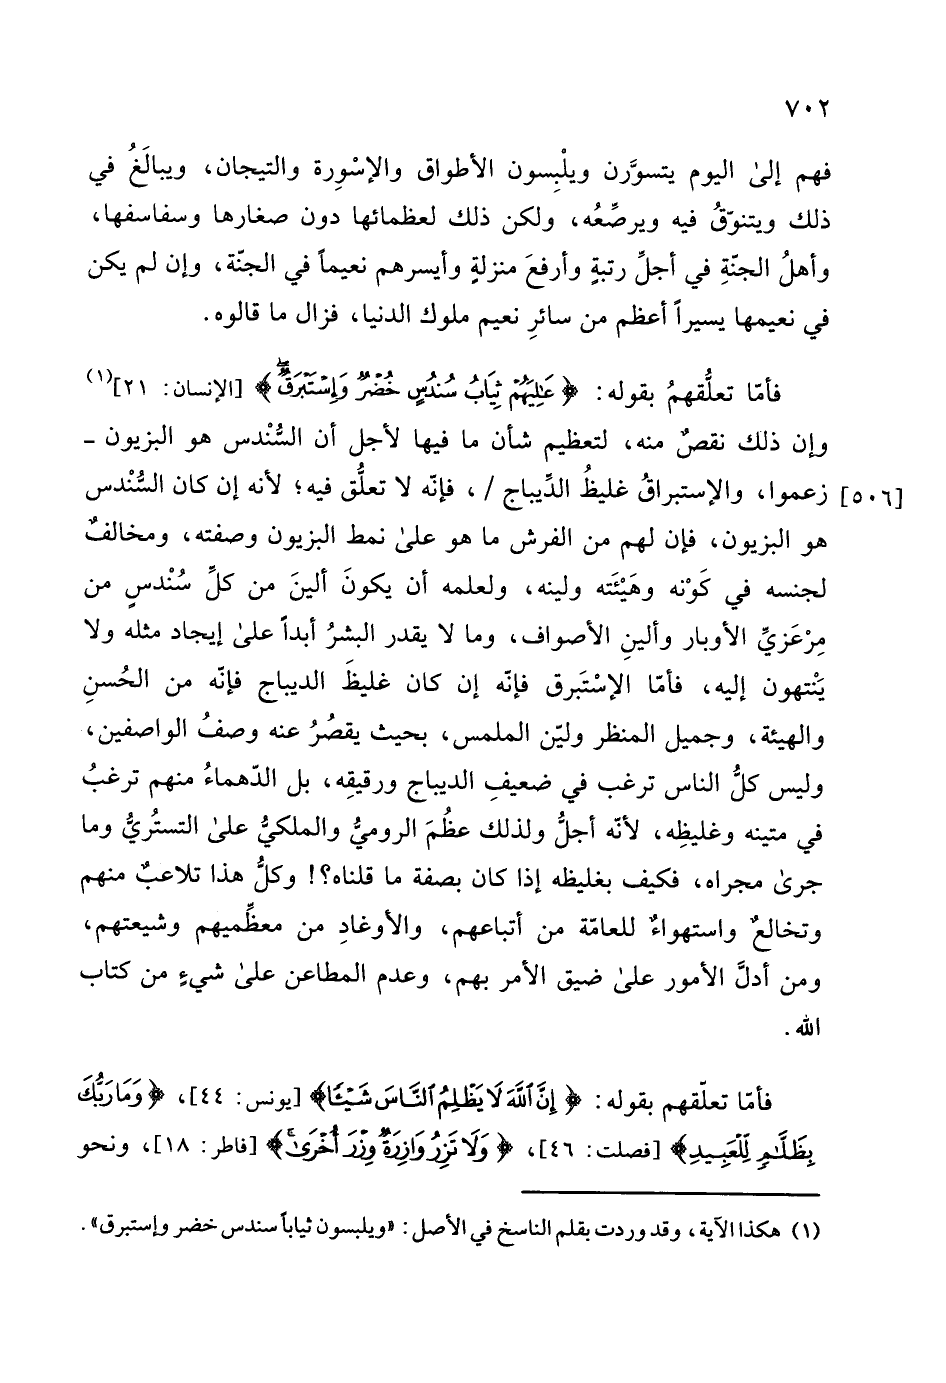 ٧٠٢
فهم إلىٰ اليوم يتسوَّرن ويلْبِسون الأطواق والإسْوِرة والتيجان، ويبالَغُ في
ذلك ويتنوّقُ فيه ويرصِّعُه، ولكن ذلك لعظمائها دون صغارها وسفاسفها،
وأهلُ الجنّةِ في أجلِّ رتبةٍ وأرفعَ منزلةٍ وأيسرهم نعيماً في الجنّة، وإن لم يكن
في نعيمها يسيراً أعظم من سائرِ نعيم ملوك الدنيا، فزال ما قالوه.
فأمّا تعلُّقهمُ بقوله: ﴿عَٰلِيَهُمْ ثِيَابُ سُندُسٍ خُضْرٌ وَإِسْتَبْرَقٌۖ﴾ [الإنسان: ٢١](١)
وإن ذلك نقصٌ منه، لتعظيم شأن ما فيها لأجل أن السُّنْدس هو البزيون ـ
[٥٠٦] زعموا، والإستبراقُ غليظُ الدِّيباج /، فإنّه لا تعلُّق فيه؛ لأنه إن كان السُّنْدس
هو البزيون، فإن لهم من الفرش ما هو علىٰ نمط البزيون وصفته، ومخالفٌ
لجنسه في كَوْنه وهَيْئَته ولينه، ولعلمه أن يكونَ ألينَ من كلِّ سُنْدسٍ من
مِرْعَزيِّ الأوبار وألينِ الأصواف، وما لا يقدر البشرُ أبداً علىٰ إيجاد مثله ولا
يَنْتهون إليه، فأمّا الإسْتَبرق فإنّه إن كان غليظَ الديباج فإنّه من الحُسنِ
والهيئة، وجميل المنظر وليّن الملمس، بحيث يقصُرُ عنه وصفُ الواصفين،
وليس كلُّ الناس ترغب في ضعيفِ الديباج ورقيقِه، بل الدّهماءُ منهم ترغبُ
في متينه وغليظِه، لأنّه أجلُّ ولذلك عظُمَ الروميُّ والملكيُّ علىٰ التستُريُّ وما
جرىٰ مجراه، فكيف بغليظه إذا كان بصفة ما قلناه؟! وكلُّ هذا تلاعبٌ منهم
وتخالعٌ واستهواءٌ للعامّة من أتباعهم، والأوغادِ من معظِّميهم وشيعتهم،
ومن أدلَّ الأمور علىٰ ضيق الأمر بهم، وعدم المطاعن علىٰ شيءٍ من كتاب
الله.
فأمّا تعلّقهم بقوله: ﴿إِنَّ ٱللَّهَ لَا يَظْلِمُ ٱلنَّاسَ شَيْـًٔا﴾ [يونس: ٤٤]، ﴿وَمَا رَبُّكَ
بِظَلَّٰمٍ لِّلْعَبِيدِ﴾ [فصلت: ٤٦]، ﴿وَلَا تَزِرُ وَازِرَةٌ وِزْرَ أُخْرَىٰۚ﴾ [فاطر: ١٨]، ونحو
(١) هكذا الآية، وقد وردت بقلم الناسخ في الأصل: «ويلبسون ثياباً سندس خضر وإستبرق».